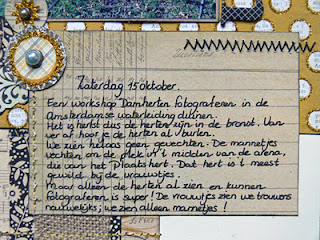 Zaterdag 15 oktober.
Een workshop Damherten fotograferen in de
Amsterdamse waterleiding duinen.
Het is herfst dus de herten zijn in de bronst. Van
ver af hoor je de herten al burlen.
We zien helaas geen gevechten. De mannetjes
vechten om de plek in 't midden van de arena,
die van het Plaatshert. Dat hert is 't meest
gewild bij de vrouwtjes.
Maar alleen de herten al zien en kunnen
fotograferen is super! De vrouwtjes zien we trouwens
nauwelijks; we zien alleen mannetjes!